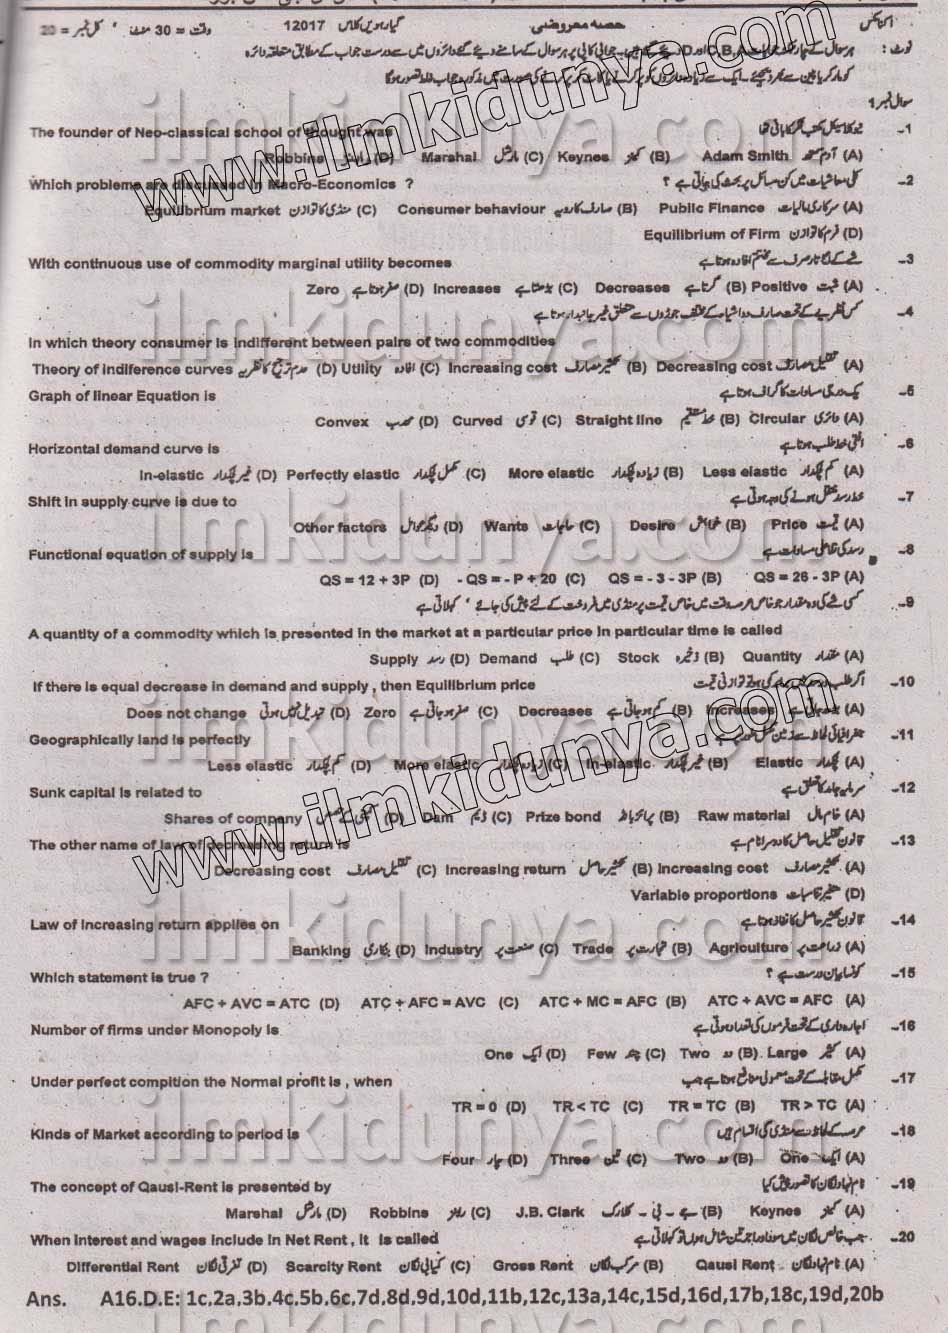 اکنامکس حصہ معروضی گیارہویں کلاس 12017 وقت = 30 منٹ کل نمبر = 20
نوٹ : ہر سوال کے چار جوابات A,B,C اور D دیئے گئے ہیں۔ جوابی کاپی پر ہر سوال کے سامنے دیئے گئے دائروں میں سے درست جواب کے مطابق متعلقہ دائرہ
سوال نمبر 1
The founder of Neo-classical school of thought was نیو کلاسیکل مکتب فکر کا بانی تھا 1-
(A) آدم سمتھ Adam Smith (B) کینز Keynes (C) مارشل Marshal (D) رابنز Robbins
Which problems are discussed in Macro-Economics ? کلی معاشیات میں کن مسائل پر بحث کی جاتی ہے ؟ 2-
(A) سرکاری مالیات Public Finance (B) صارف کا رویہ Consumer behaviour (C) منڈی کا توازن Equilibrium market
(D) فرم کا توازن Equilibrium of Firm
With continuous use of commodity marginal utility becomes شے کے لگاتار صرف سے مختتم افادہ ہوتا ہے 3-
(A) مثبت Positive (B) گرتا ہے Decreases (C) بڑھتا ہے Increases (D) صفر ہوتا ہے Zero
کس نظریے کے تحت صارف دو اشیاء کے مختلف جوڑوں سے متعلق غیر جانبدار ہوتا ہے 4-
In which theory consumer is indifferent between pairs of two commodities
(A) تقلیل مصارف Decreasing cost (B) تکثیر مصارف Increasing cost (C) افادہ Utility (D) عدم ترجیح کا نظریہ Theory of indiference curves
Graph of linear Equation is یک درجی مساوات کا گراف ہوتا ہے 5-
(A) دائری Circular (B) خط مستقیم Straight line (C) قوسی Curved (D) محدب Convex
Horizontal demand curve is افقی خط طلب ہوتا ہے 6-
(A) کم لچکدار Less elastic (B) زیادہ لچکدار More elastic (C) مکمل لچکدار Perfectly elastic (D) غیر لچکدار In-elastic
Shift in supply curve is due to خط رسد منتقل ہونے کی وجہ ہوتی ہے 7-
(A) قیمت Price (B) خواہش Desire (C) حاجات Wants (D) دیگر عوامل Other factors
Functional equation of supply is رسد کی تفاعلی مساوات ہے 8-
QS = 26 - 3P (A) QS = - 3 - 3P (B) - QS = - P + 20 (C) QS = 12 + 3P (D)
کسی شے کی وہ مقدار جو خاص عرصہ وقت میں خاص قیمت پر منڈی میں فروخت کے لئے پیش کی جائے ' کہلاتی ہے 9-
A quantity of a commodity which is presented in the market at a particular price in particular time is called
(A) مقدار Quantity (B) ذخیرہ Stock (C) طلب Demand (D) رسد Supply
If there is equal decrease in demand and supply , then Equilibrium price 10-
(A) Increases (B) کم ہو جاتی ہے Decreases (C) صفر ہو جاتی ہے Zero (D) تبدیل نہیں ہوتی Does not change
Geographically land is perfectly 11-
(A) لچکدار Elastic (B) غیر لچکدار In-elastic (C) زیادہ لچکدار More elastic (D) کم لچکدار Less elastic
Sunk capital is related to سرمایہ جامد کا تعلق ہے 12-
(A) خام مال Raw material (B) پرائز بانڈ Prize bond (C) ڈیم Dam (D) Shares of company
The other name of law of decreasing return is قانون تقلیل حاصل کا دوسرا نام ہے 13-
(A) تکثیر مصارف Increasing cost (B) تکثیر حاصل Increasing return (C) تقلیل مصارف Decreasing cost
(D) متغیر تناسبات Variable proportions
Law of increasing return applies on قانون تکثیر حاصل کا نفاذ ہوتا ہے 14-
(A) زراعت پر Agriculture (B) تجارت پر Trade (C) صنعت پر Industry (D) بنکاری Banking
Which statement is true ? کونسا بیان درست ہے ؟ 15-
ATC + AVC = AFC (A) ATC + MC = AFC (B) ATC + AFC = AVC (C) AFC + AVC = ATC (D)
Number of firms under Monopoly is اجارہ داری کے تحت فرموں کی تعداد ہوتی ہے 16-
(A) کثیر Large (B) دو Two (C) چند Few (D) ایک One
Under perfect compition the Normal profit is , when مکمل مقابلہ کے تحت معمولی منافع ہوتا ہے جب 17-
TR > TC (A) TR = TC (B) TR < TC (C) TR = 0 (D)
Kinds of Market according to period is عرصہ کے لحاظ سے منڈی کی اقسام ہیں 18-
(A) ایک One (B) دو Two (C) تین Three (D) چار Four
The concept of Qausi-Rent is presented by نام نہاد لگان کا تصور پیش کیا 19-
(A) کینز Keynes (B) جے - بی - کلارک J.B. Clark (C) رابنز Robbins (D) مارشل Marshal
When interest and wages include in Net Rent , it is called 20-
(A) نام نہاد لگان Qausi Rent (B) مرکب لگان Gross Rent (C) کمیابی لگان Scarcity Rent (D) تفرقی لگان Differential Rent
Ans. A16.D.E: 1c,2a,3b.4c,5b.6c,7d,8d.9d,10d,11b,12c,13a,14c,15d,16d,17b,18c,19d,20b
www.ilmkidunya.com
www.ilmkidunya.com
ilmkidunya.com